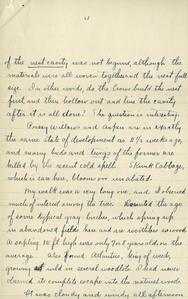 of the nest cavity was not begun, although the
materials were all woven together and the nest full
size. In other words, do the Crows build the nest
first and then hollow out and line the cavity
after it is all done? The question is interesting.
Pussy Willows and Aspen are in exactly
the same state of development as 2½ weeks ago,
and many buds and twigs of the former are
killed by the recent cold spell. Skunk Cabbage,
which is rare here, blooms on unabated.
My walk was a very long one, and I observed
much of interest among the trees. Counted the age
of some typical gray birches, which spring up
in abandoned fields here and are worthless
A sapling 18 ft high was only 7 or 8 years old on the
average. Also found
growing wild in several woodlots. I had never
deemed it complete escape into the natural woods.
It was cloudy and windy all afternoon